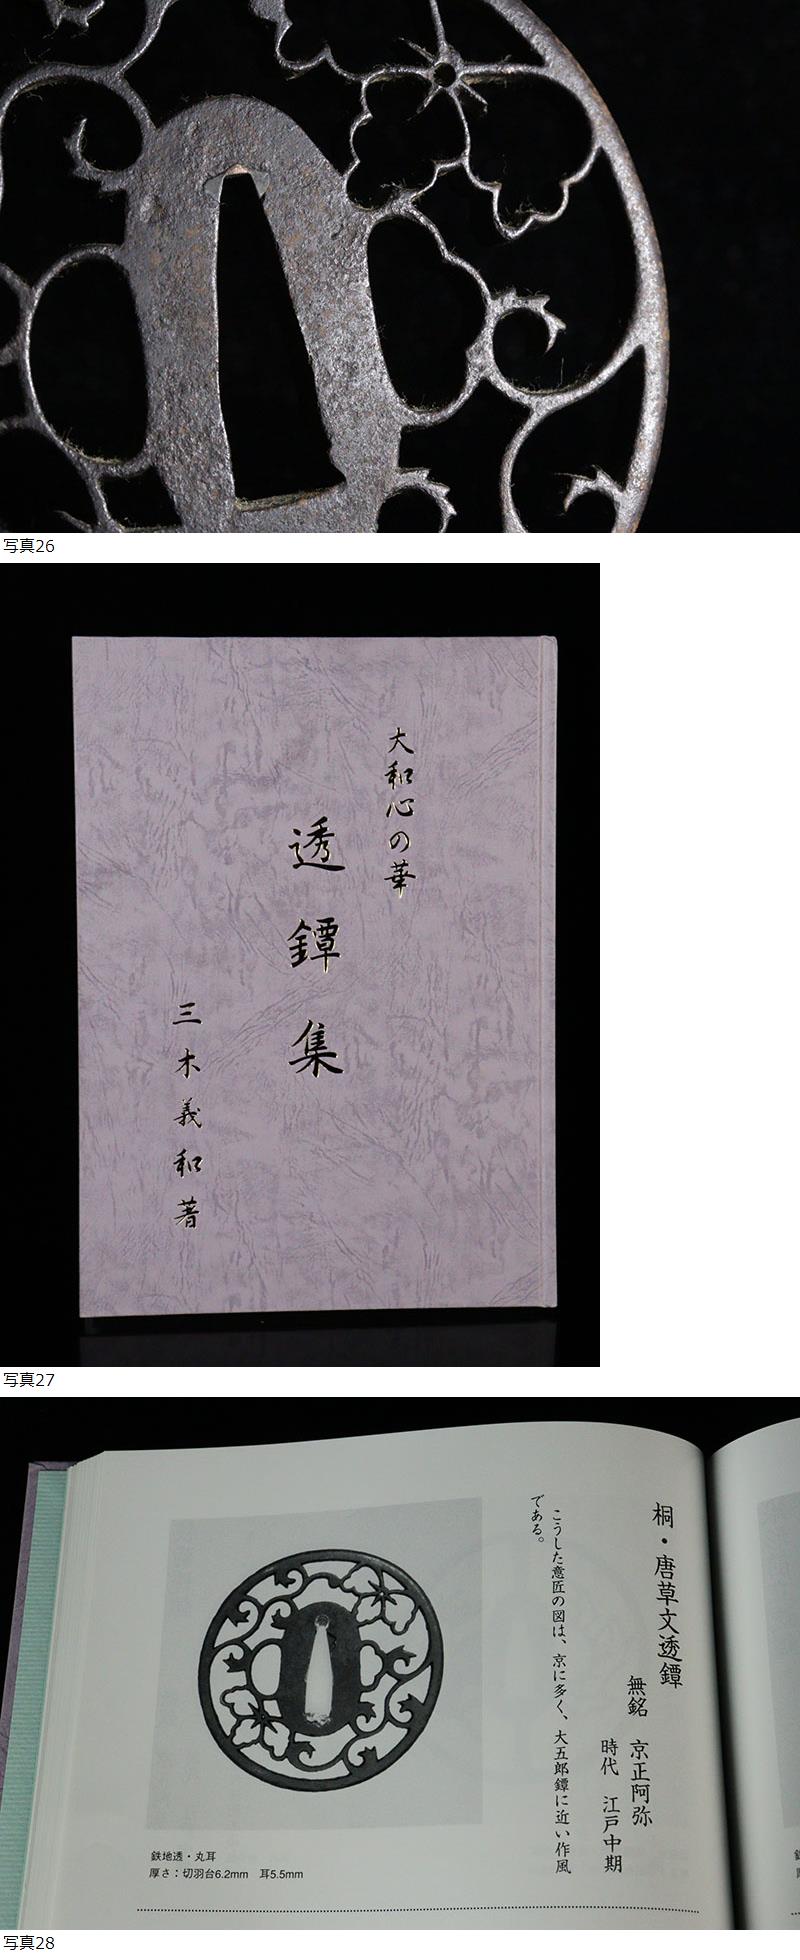 写真26
大和心の華
透鐔集
三木義和著
写真27
桐・唐草文透鐔
無銘 京正阿弥
時代 江戸中期
こうした意匠の図は、京に多く、大五郎鐔に近い作風
である。
鉄地透・丸耳
厚さ：切羽台6.2mm 耳5.5mm
写真28